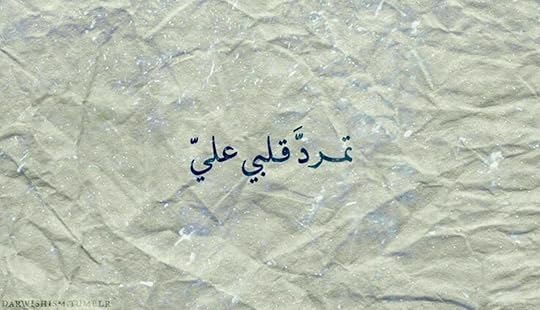 تمردَّ قلبي عليّ
DARWISHISM.TUMBLR